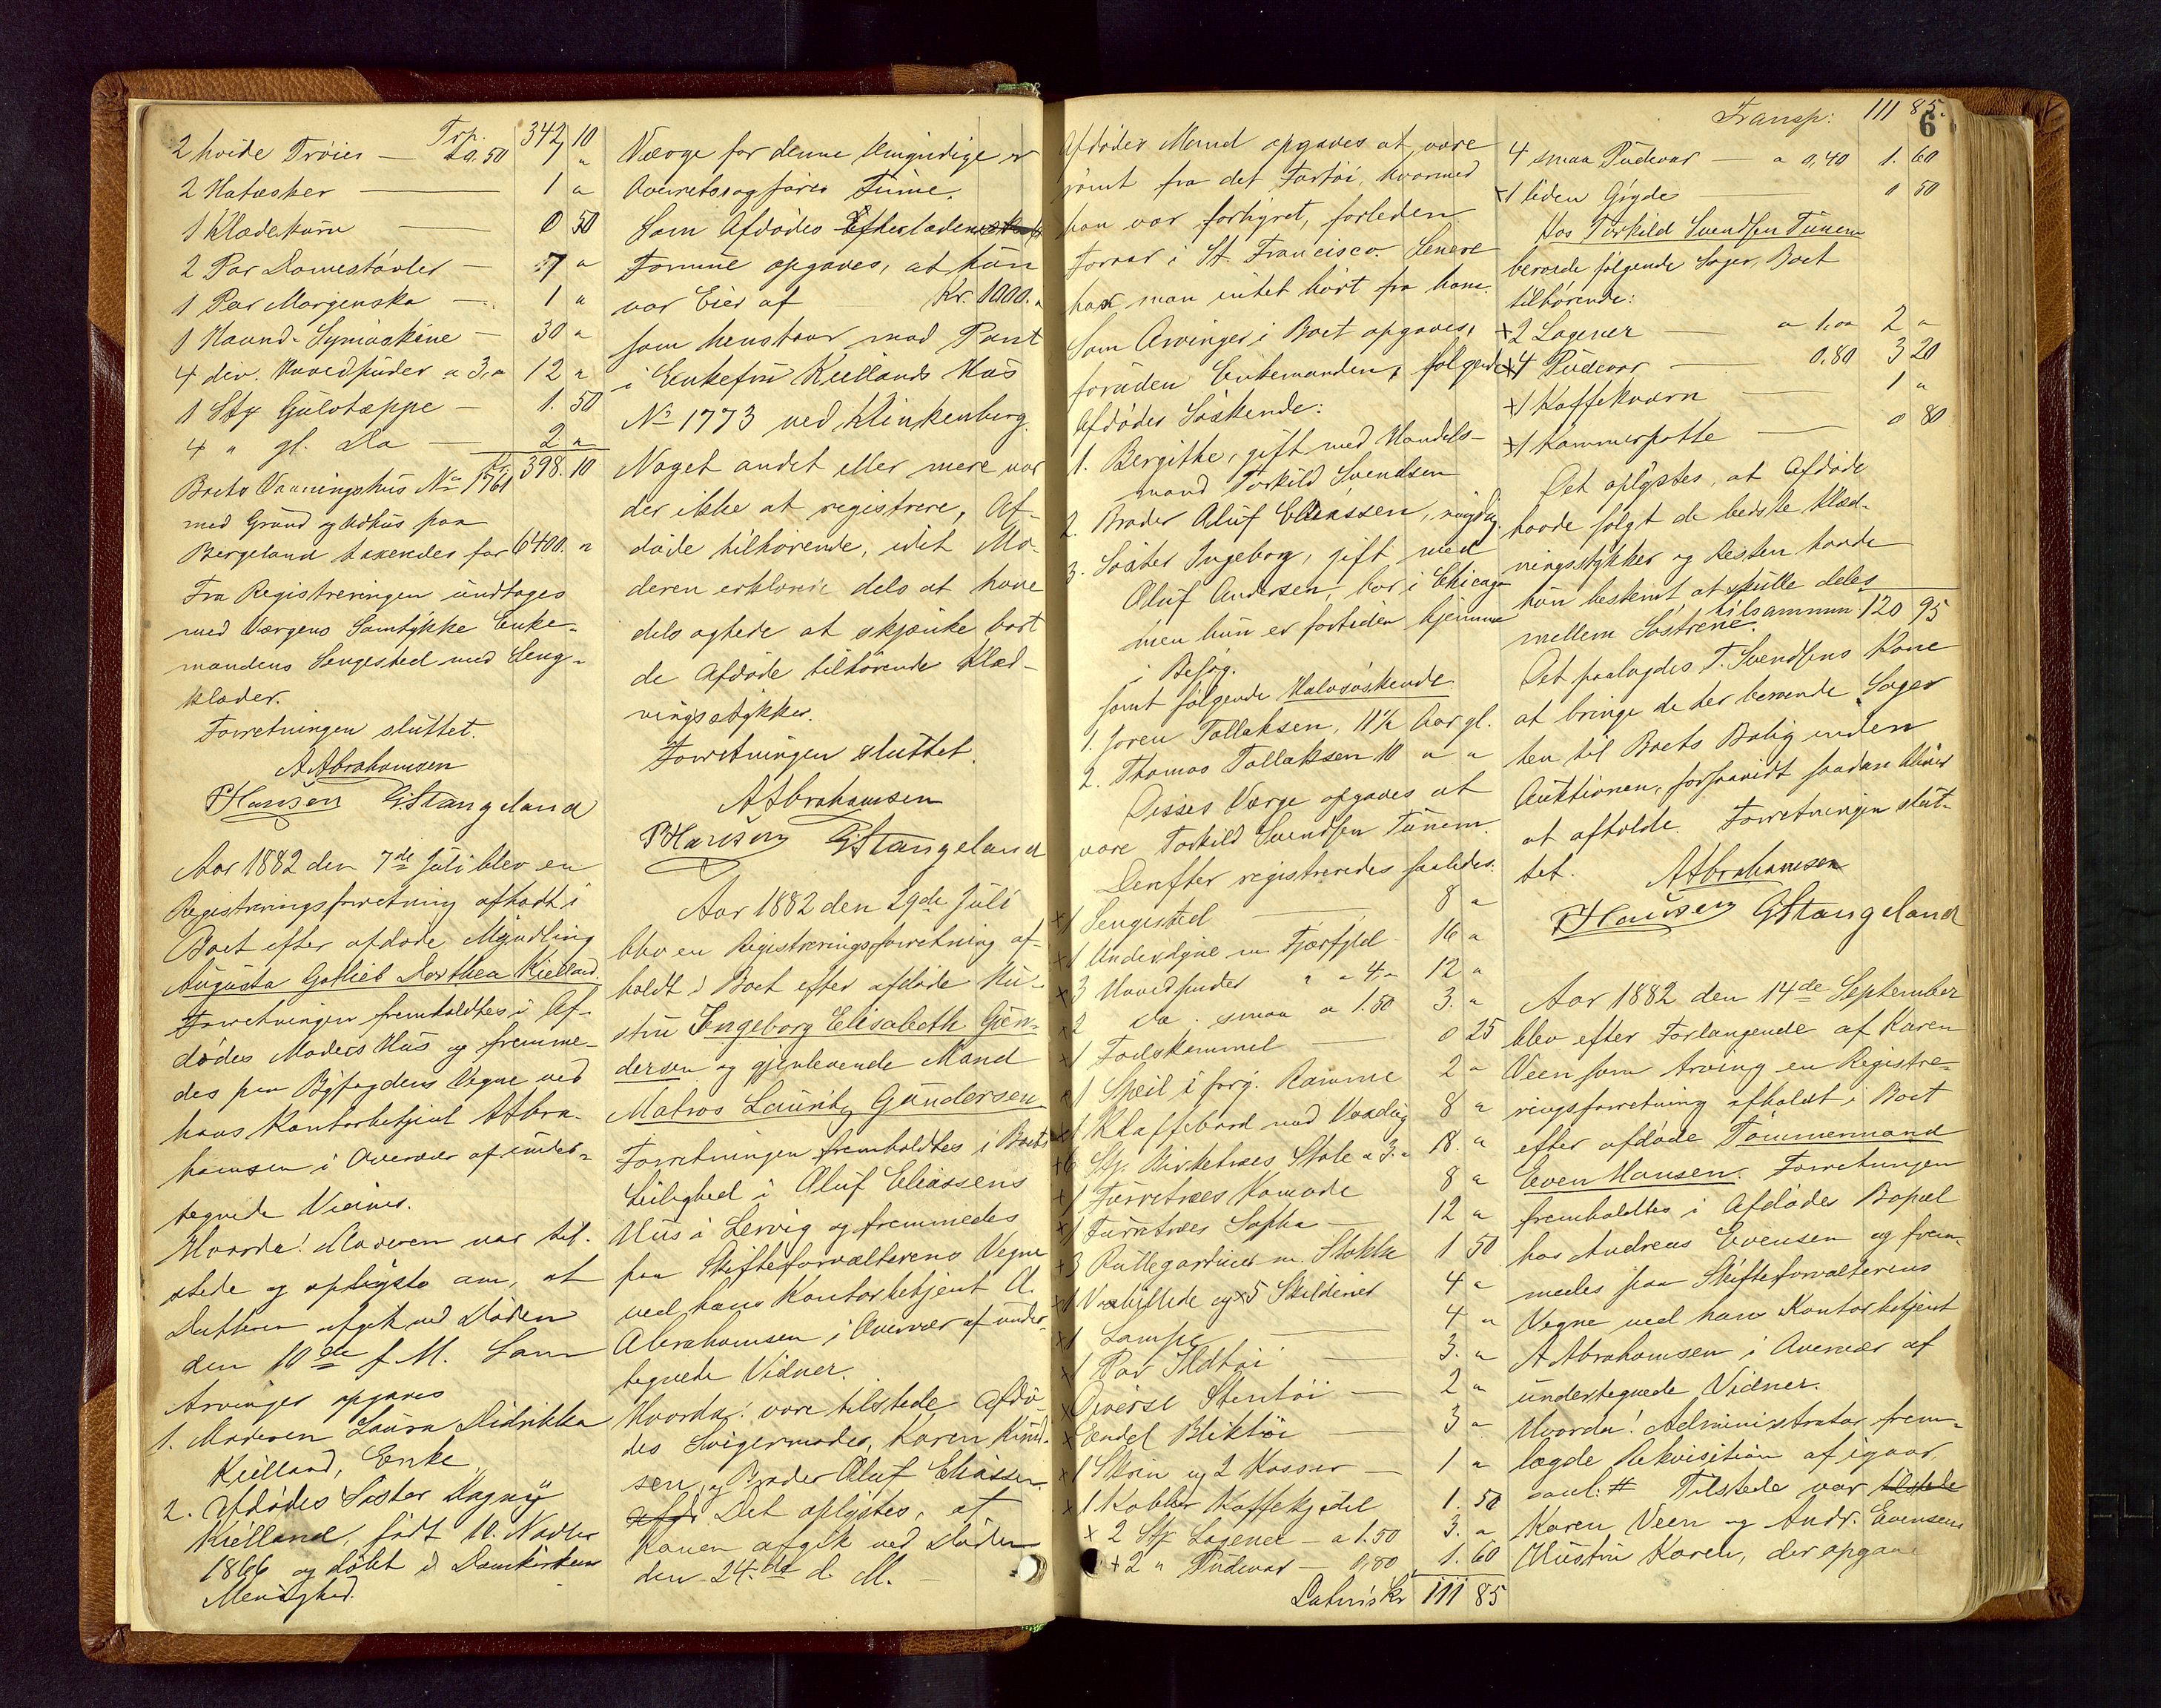 Trp. 342 10
2 hvide Trøier — a 0.50 1 "
2 Hatæsker — 1 "
1 Klædekurv — 0 50
2 Par Damestøvler — 7 "
1 Par Morgensko — 1 "
1 Haand-Symaskine — 30 "
4 div. Hovedpuder a 3," 12 "
1 Stk Gulvtæppe — 1. 50
4 " gl. Do — 2 "
Kr. 398. 10
Boets Vaaningshus No 1761
med Grund og Udhus paa
Bergeland taxeredes for 6400. "
Fra Registreringen undtoges
med Værgens Samtykke Enke-
mandens Sengested med Seng-
klæder.
Forretningen sluttet.
A Abrahamsen
P Hansen G Stangeland
Aar 1882 den 7de Juli blev en
Registreringsforretning afholdt i
Boet efter afdøde Myndling
Augusta Gotlieb Dorthea Kielland.
Forretningen fremholdtes i Af-
dødes Moders Hus og fremme-
des paa Byfogdens Vegne ved
hans Kontorbetjent Abra-
hamsen i Overvær af under-
tegnede Vidner.
Hvorda! Moderen var til-
stede og oplyste om, at
Datteren afgik ved Døden
den 10de f. M. Som
Arvinger opgaves
1. Moderen Laura Didrikka
Kielland, Enke,
2. Afdødes Søster Dagny
Kielland, født 10. Novbr
1866 og døbt i Domkirkens
Menighed.
Værge for denne Umyndige er
Overretssagfører Timme.
Som Afdødes Efterladenskab
Formue opgaves, at hun
var Eier af Kr. 1000. "
som henstaar mod Pant
i Enkefru Kiellands Hus
No 1773 ved Klinkenberg.
Noget andet eller mere var
der ikke at registrere, Af-
døde tilhørende, idet Mo-
deren erklærte dels at have
dels agtede at skjænke bort
de Afdøde tilhørende Klæd-
ningsstykker.
Forretningen sluttet.
A Abrahamsen
P Hansen G Stangeland
Aar 1882 den 29de Juli
blev en Registreringsforretning af-
holdt i Boet efter afdøde Hu-
stru Ingeborg Elisabeth Gun-
dersen og gjenlevende Mand
Matros Lauritz Gundersen.
Forretningen fremholdtes i Boets
Leilighed i Oluf Eliassens
Hus i Lervig og fremmedes
paa Skifteforvalterens Vegne
ved hans Kontorbetjent A.
Abrahamsen i Overvær af under-
tegnede Vidner.
Hvorda! vare tilstede Afdø-
des Svigermoder, Karen Knud-
sen, og Broder Oluf Eliassen.
Det oplystes, at
Konen afgik ved Døden
den 24.de d. M. —
Afdødes Mand opgaves at være
rømt fra det Fartøi, hvormed
han var forhyret, forleden
Foraar i St. Francisco. Senere
har man intet hørt fra ham.
Som Arvinger i Boet opgaves,
foruden Enkemanden, følgende
Afdødes Søskende:
1. Bergithe, gift med Handels-
mand Torkild Svendsen
2. Broder Oluf Eliassen, myndig.
3. Søster Ingeborg, gift med
Oluf Andersen, bor i Chicago
men hun er fortiden hjemme
i Besøg.
samt følgende Halvsøskende
1. Søren Tollaksen, 11½ Aar gl.
2. Thomas Tollaksen 10 " "
Disses Værge opgaves at
være Torkild Svendsen Tunem.
Derefter registreredes saaledes:
x1 Sengested — 8 "
x1 Underdyne m. Fjærfyld 16 "
x3 Hovedpuder " a 4 " 12 "
x2 Do. smaa a 1.50 3. "
x1 Fodskammel — 0 25
x1 Speil i forg. Ramme 2 "
x1 Klaffebord med Voxdug 8 "
x6 Stk. Birketræes Stole a 3." 18. "
x1 Furretræes Komode 8 "
x1 Furretræes Sofa — 12 "
x3 Rullegardiner m. Stokke 1 50
x1 Vægbillede og x5 Skilderier 4 "
x1 Lampe — 4 "
x1 Par Ildtøi — 3. "
x Diverse Stentøi — 2 "
x Endel Bliktøi — 3 "
x1 Skrin og 2 Kasser — 1 "
x1 Kobber Kaffekjedel 1. 50
x 2 Stk Lagener — a 1.50 3. "
x 2 " Pudevar — 0,80 1. 60
Lateris Kr 111 85
Transp: 111 85.
6
4 smaa Pudevar — a 0,40 1. 60
x1 liden Gryde — 0 50
Hos Torkild Svendsen Tunem
beroede følgende Sager, Boet
tilhørende:
x2 Lagener — a 1,00 2 "
x4 Pudevar — 0,80 3 20
x1 Kaffekværn — 1 "
x1 Kammerpotte — 0 80
Det oplystes, at Afdøde
havde solgt de bedste Klæd-
ningsstykker og Resten havde
hun bestemt at skulle deles
mellem Søstrene. tilsammen 120 95
Det paalagdes T. Svendsens Kone
at bringe de der beroende Sager
hen til Boets Bolig inden
Auktionen, forsaavidt saadan bliver
at afholde. Forretningen slut-
tet. A Abrahamsen
P Hansen G Stangeland
Aar 1882 den 14de September
blev efter Forlangende af Karen
Veen som Arving en Registre-
ringsforretning afholdt i Boet
efter afdøde Tømmermand
Even Hansen. Forretningen
fremholdtes i Afdødes Bopæl
hos Andreas Evensen og frem-
medes paa Skifteforvalterens
Vegne ved hans Kontorbetjent
A Abrahamsen i Overvær af
undertegnede Vidner.
Hvorda! Administrator frem-
lagde Rekvisition af igaar,
saal: # Tilstede var tilstede
Karen Veen og Andr. Evensens
Hustru Karen, der opgave